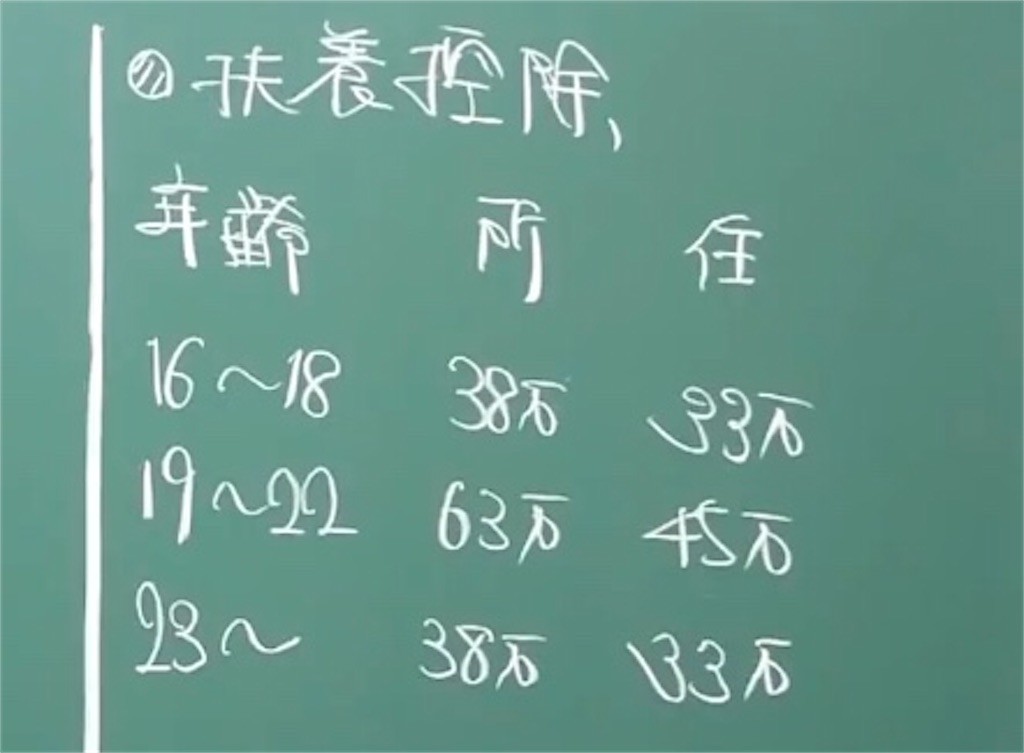 ◎扶養控除、
年齢 所 住
16〜18 38万 33万
19〜22 63万 45万
23〜 38万 33万